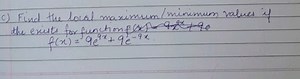 c) Find the local maximum/minimum values if
the exists for function
f(x) = 9e^{9x} + 9e^{-9x}